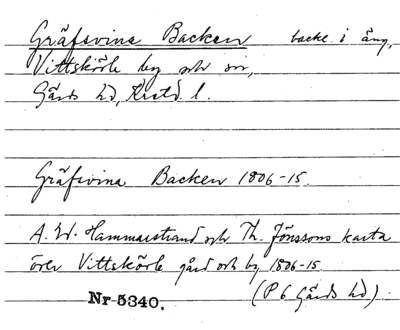 Gräfsvina Backen backe i äng,
Vittskövle by och sn,
Gärds hd, Kristd. l.
Gräfsvina Backen 1806-15.
A. W. Hammarstrand och Th. Jönssons karta
över Vittskövle gård och by 1806-15.
(P 6 Gärds hd)
Nr 5340.